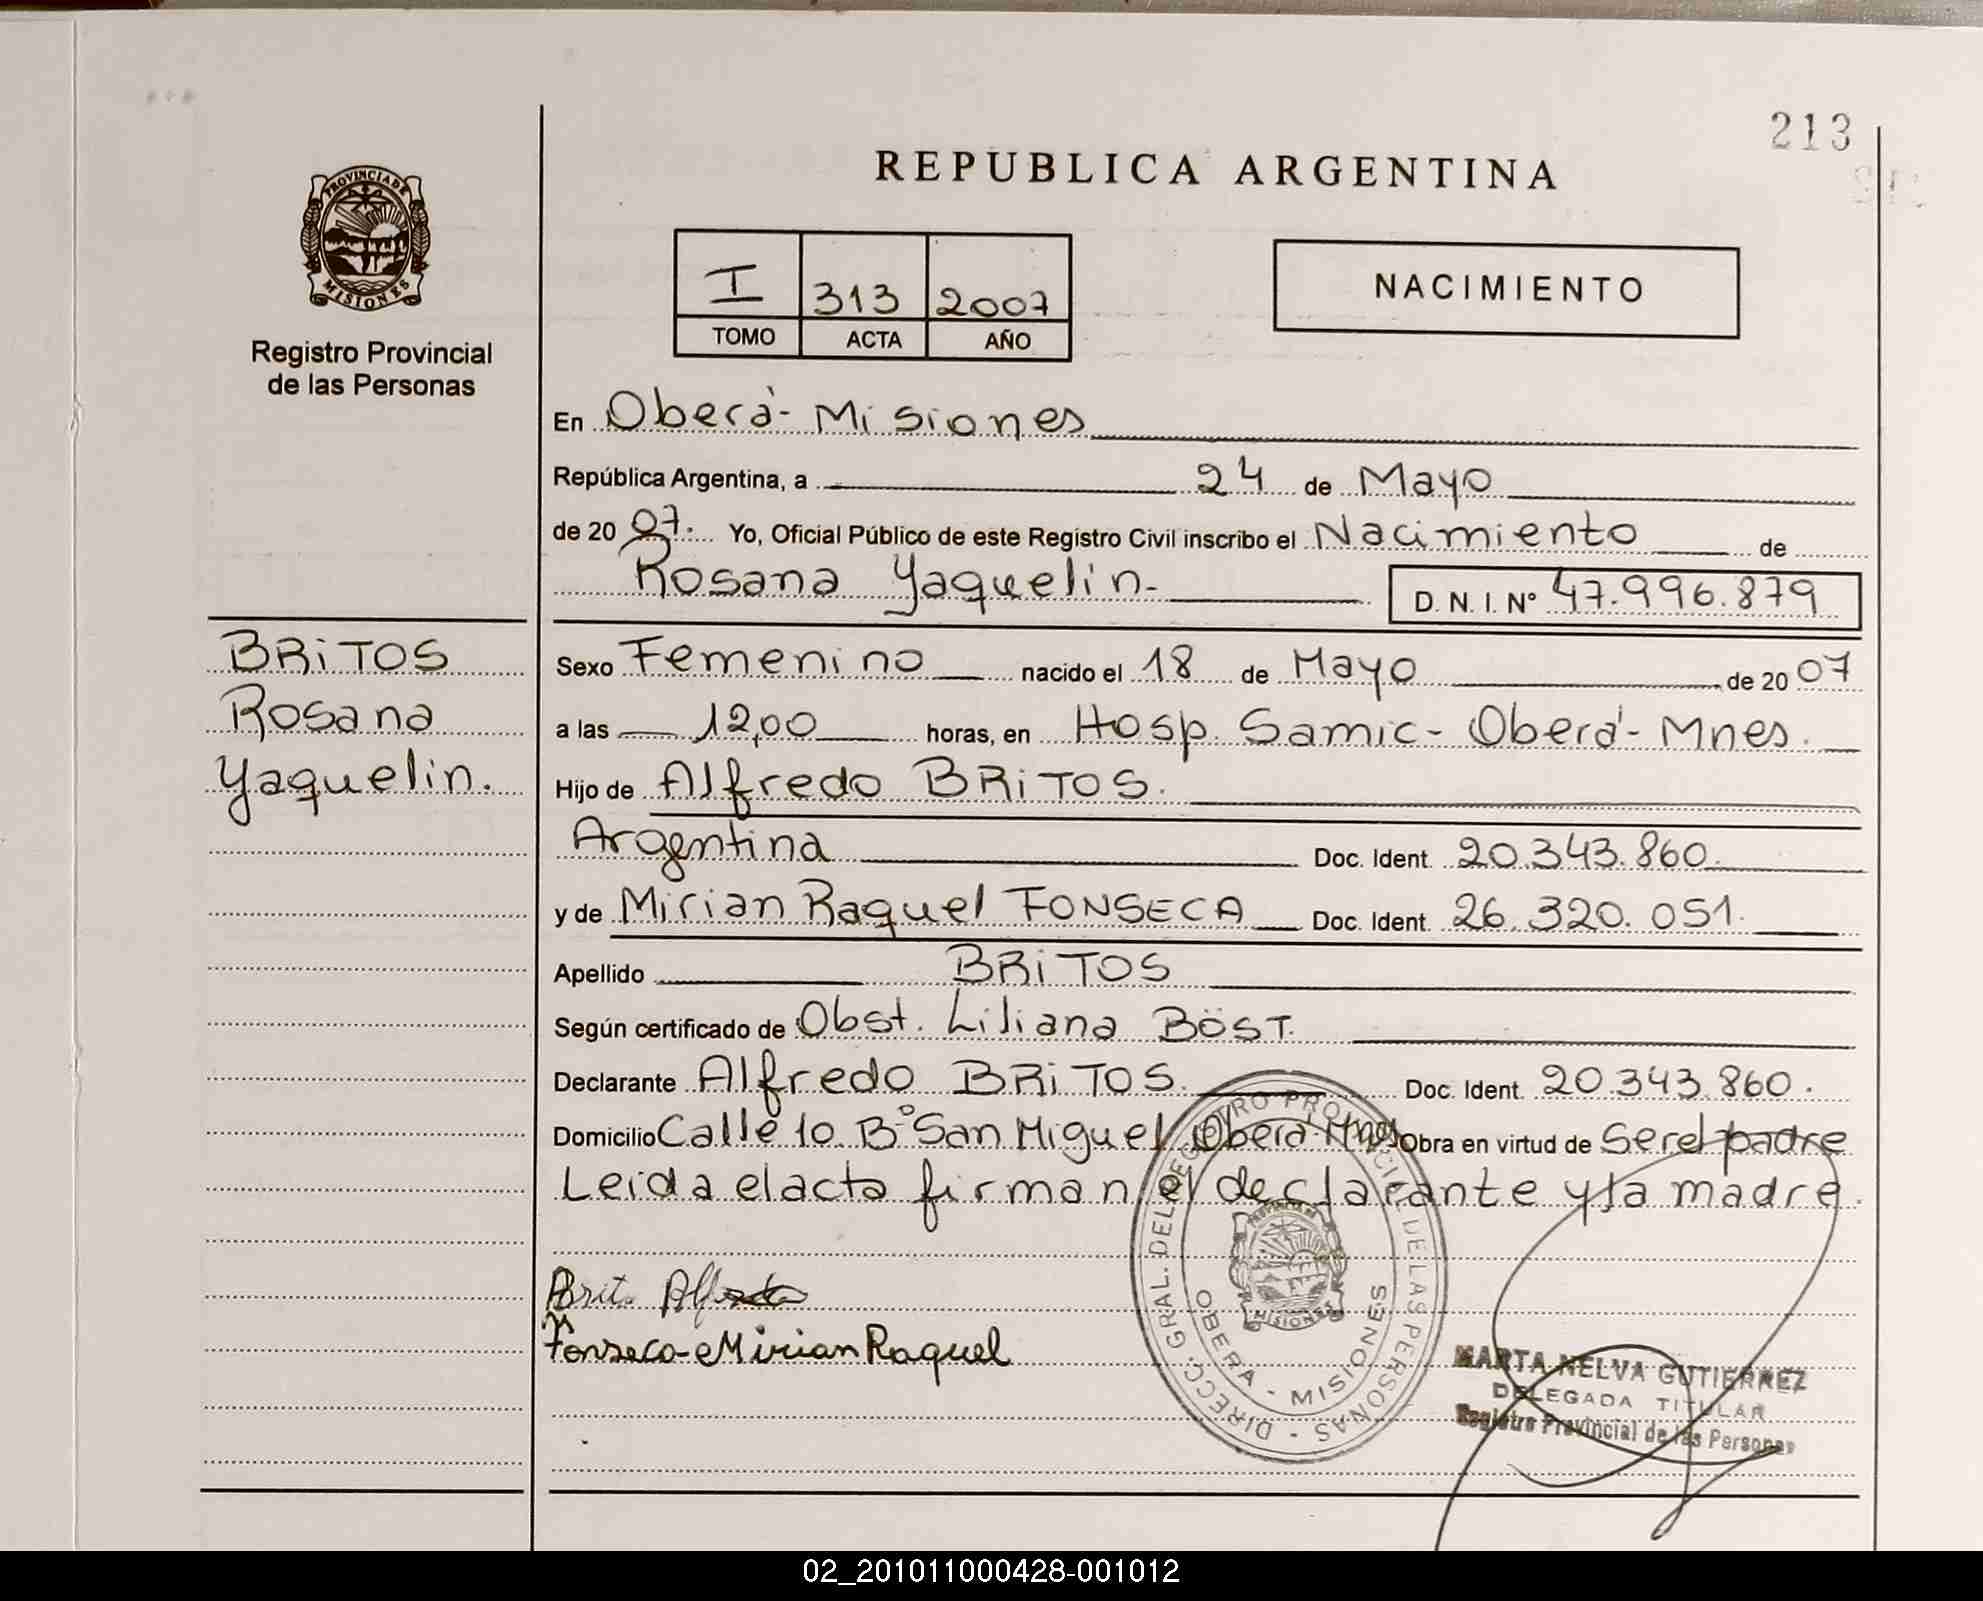 213
PROVINCIA DE
MISIONES
Registro Provincial
de las Personas
REPUBLICA ARGENTINA
I 313 2007
TOMO ACTA AÑO
NACIMIENTO
En Oberá - Misiones
República Argentina, a 24 de Mayo
de 2007. Yo, Oficial Público de este Registro Civil inscribo el Nacimiento de
Rosana Yaquelin.- D. N. I. Nº 47.996.879
BRiTOS
Rosana
Yaquelin.
Sexo Femenino nacido el 18 de Mayo de 2007
a las 12,00 horas, en Hosp. Samic - Oberá - Mnes.
Hijo de Alfredo BRiTOS.
Argentina Doc. Ident. 20.343.860.
y de Mirian Raquel FONSECA Doc. Ident. 26.320.051.
Apellido BRiTOS
Según certificado de Obst. Liliana BÖST.
Declarante Alfredo BRiTOS. Doc. Ident. 20.343.860.
Domicilio Calle 10 Bº San Miguel Oberá Mnes Obra en virtud de Ser el padre
Leida el acta firman el declarante y la madre.
Brito Alfredo
Fonseca Mirian Raquel
DIRECC. GRAL. DEL REGISTRO PROVINCIAL DE LAS PERSONAS
OBERA - MISIONES
MARTA NELVA GUTIERREZ
DELEGADA TITULAR
Registro Provincial de las Personas
02_201011000428-001012